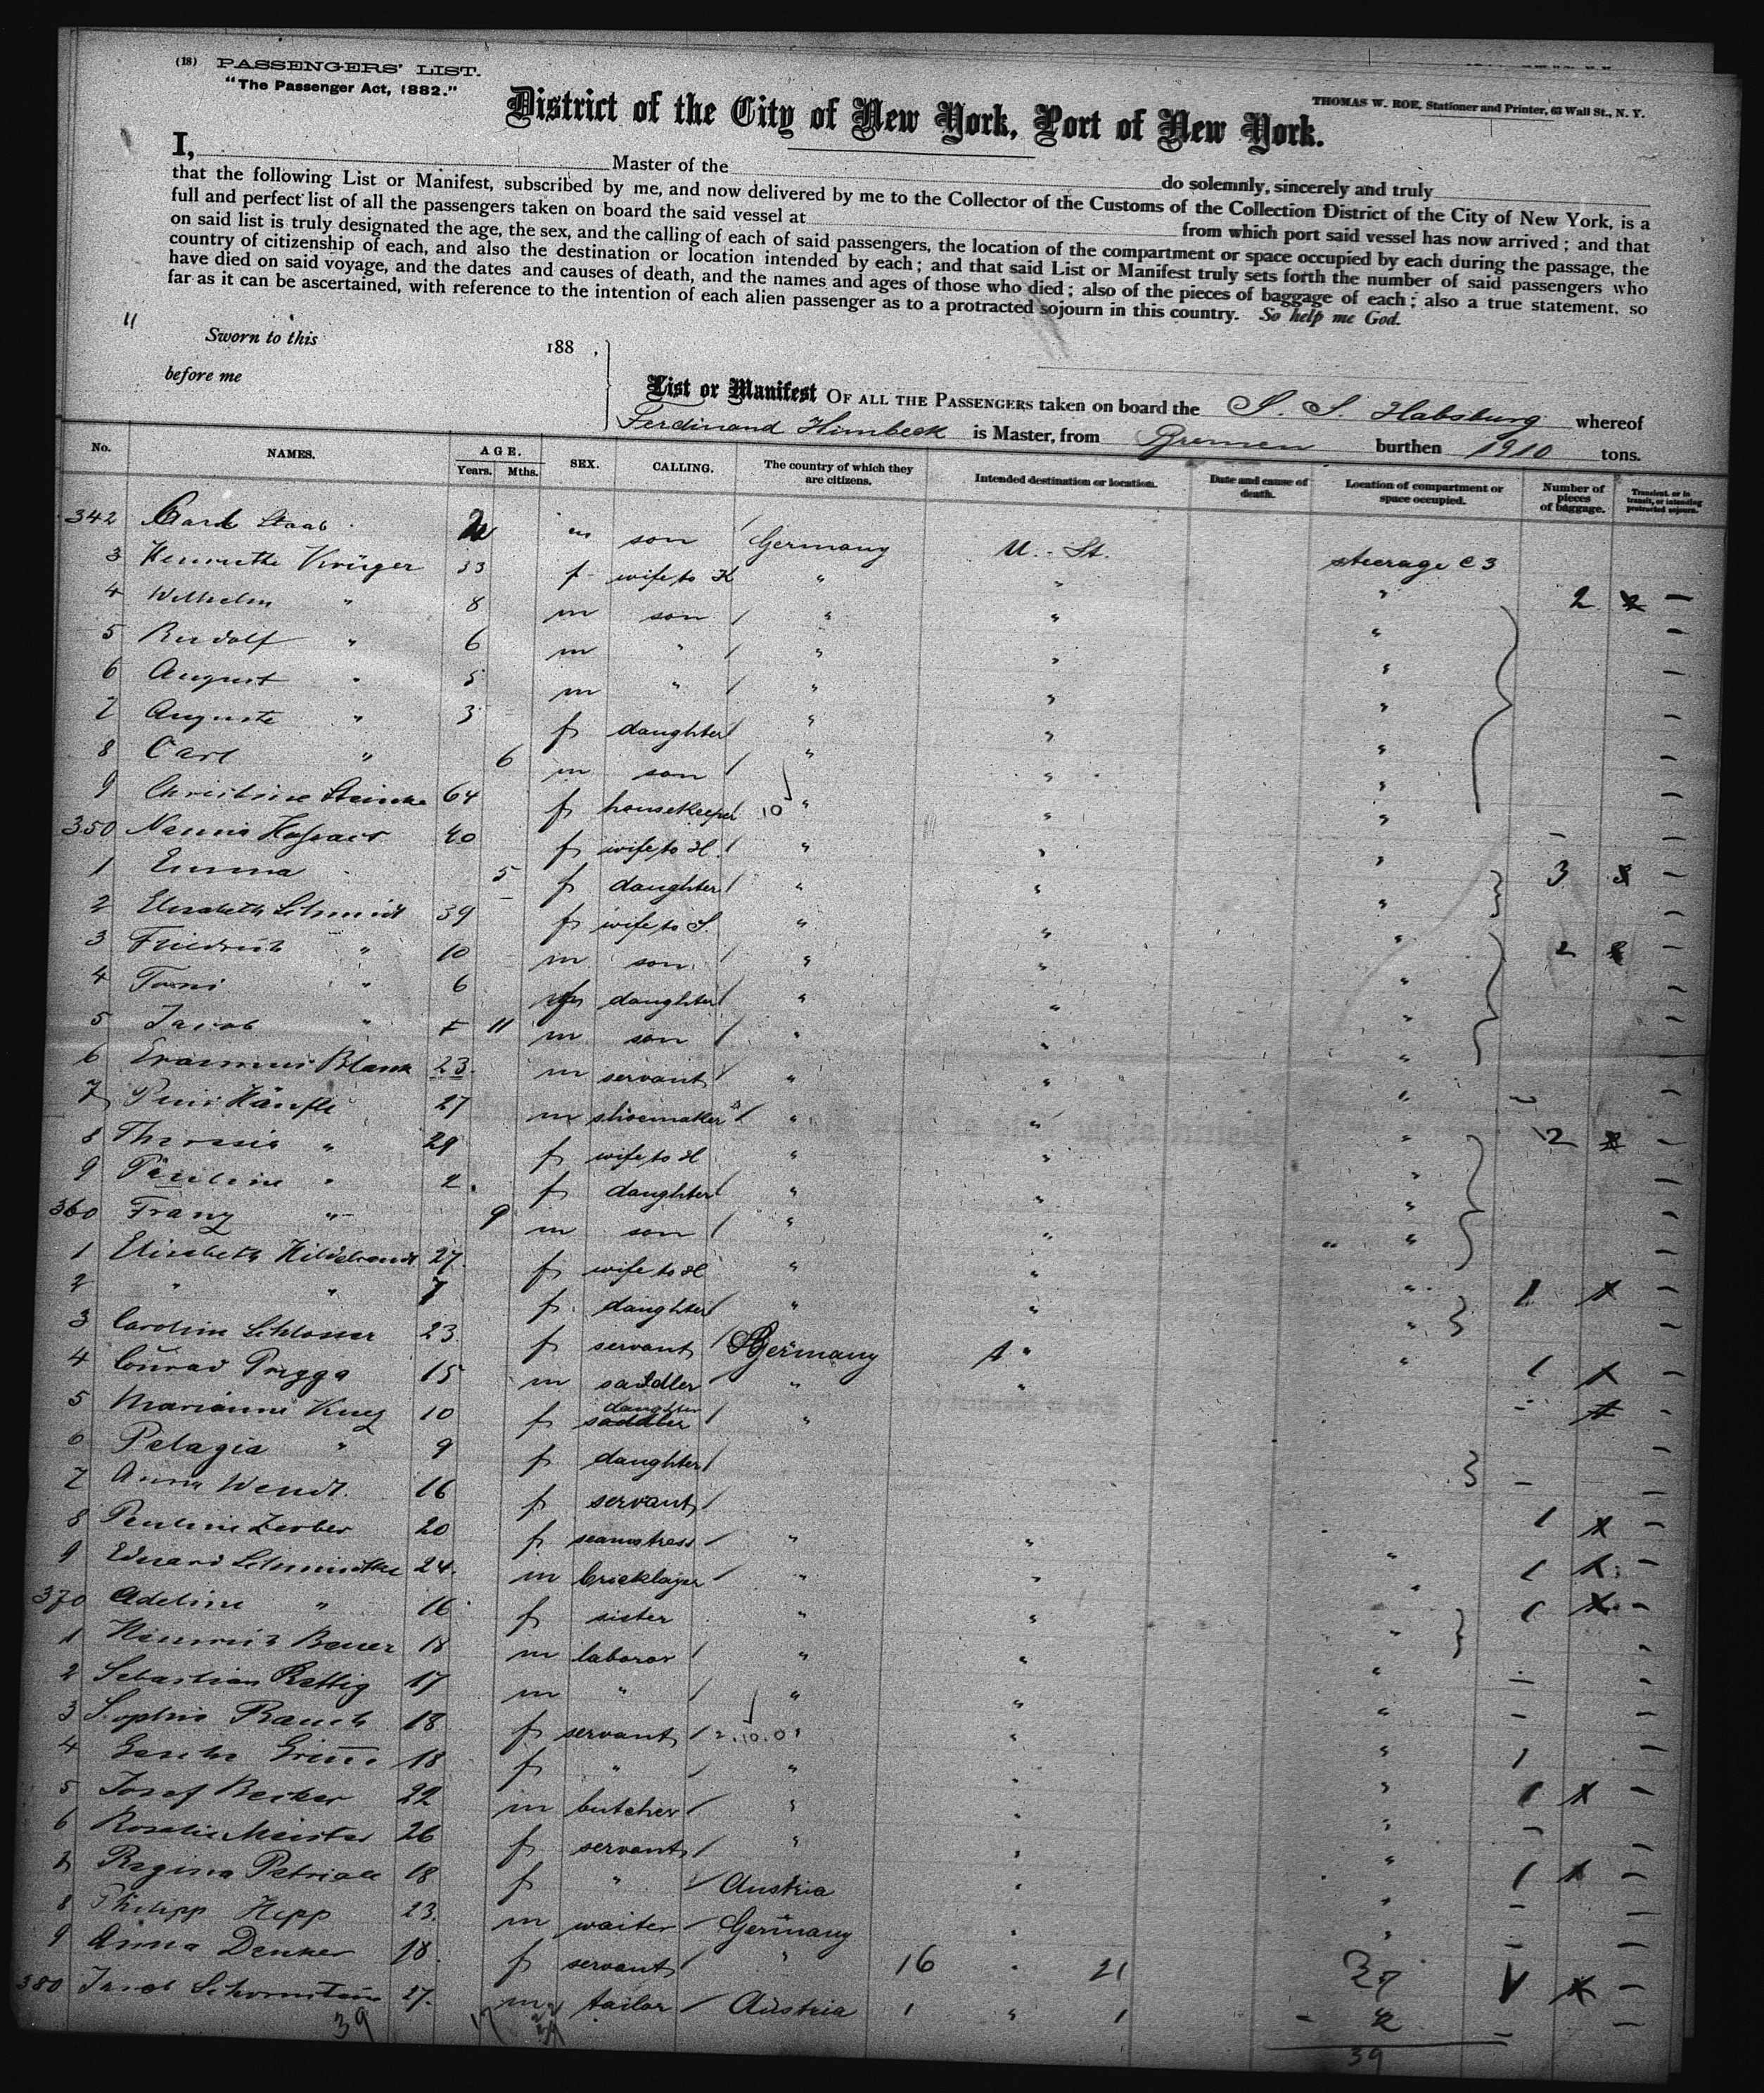 (18) PASSENGERS' LIST.
"The Passenger Act, 1882."
THOMAS W. ROE, Stationer and Printer, 63 Wall St., N. Y.
District of the City of New York, Port of New York.
I, Master of the do solemnly, sincerely and truly
that the following List or Manifest, subscribed by me, and now delivered by me to the Collector of the Customs of the Collection District of the City of New York, is a
full and perfect list of all the passengers taken on board the said vessel at from which port said vessel has now arrived; and that
on said list is truly designated the age, the sex, and the calling of each of said passengers, the location of the compartment or space occupied by each during the passage, the
country of citizenship of each, and also the destination or location intended by each; and that said List or Manifest truly sets forth the number of said passengers who
have died on said voyage, and the dates and causes of death, and the names and ages of those who died; also of the pieces of baggage of each; also a true statement, so
far as it can be ascertained, with reference to the intention of each alien passenger as to a protracted sojourn in this country. So help me God.
11
Sworn to this 188 ,
before me
List or Manifest OF ALL THE PASSENGERS taken on board the S. S. Habsburg whereof
Ferdinand Himbeck is Master, from Bremen burthen 1910 tons.
No. NAMES. AGE. Years. Mths. SEX. CALLING. The country of which they are citizens. Intended destination or location. Date and cause of death. Location of compartment or space occupied. Number of pieces of baggage. Transient, or in transit, or intending protracted sojourn.
342 Staab m son Germany U. St. steerage C 3
3 Henriette Krüger 33 f wife to K " " " 2 –
4 Wilhelm " 8 m son " " " –
5 Rudolf " 6 m " " " " –
6 August " 5 m " " " " –
7 Auguste " 3 f daughter " " " –
8 Carl " 6 m son " " " –
9 Christine 64 f housekeeper 10 " " " –
350 40 f wife to H. " " " 3 –
1 Emma 5 f daughter " " " –
2 Elisabeth Schmidt 39 f wife to S. " " " 2 –
3 Friedrich " 10 m son " " " –
4 Toni " 6 f daughter " " " –
5 Jacob " 11 m son " " " –
6 Erasmus Blank 23 m servant " " " – –
7 27 m shoemaker " " " 2 –
8 Theresia " 29 f wife to H " " " –
9 Pauline " 2 f daughter " " " –
360 Franz " 9 m son " " " –
1 Elisabeth Hildebrandt 27 f wife to H " " " 1 –
2 " " 7 f daughter " " " –
3 Caroline Schlosser 23 f servant Germany " " 1 –
4 Conrad Prigga 15 m saddler " " – –
5 Marianne 10 f daughter " –
6 Pelagia " 9 f daughter – –
7 Anna Wendt 16 f servant 1 –
8 Pauline Zerber 20 f seamstress " " " 1 –
9 Eduard 24 m bricklayer " " " 1 –
370 Adeline " 16 f sister " " " –
1 Heinrich Bauer 18 m laborer " " " – –
2 Sebastian Rettig 17 m " " " " – –
3 Sophie Rauch 18 f servant 2.10.0 " " 1 –
4 18 f " " " " 1 –
5 Josef Becker 22 m butcher " " " – –
6 Rosalie Meister 26 f servant " " " 1 –
7 Regina 18 f " Austria " " – –
8 Philipp Hepp 23 m waiter Germany " " – –
9 Anna Denker 18 f servant " 16 " 21 –
380 Jacob 27 m tailor Austria 1 " 1 – –
39 17 39